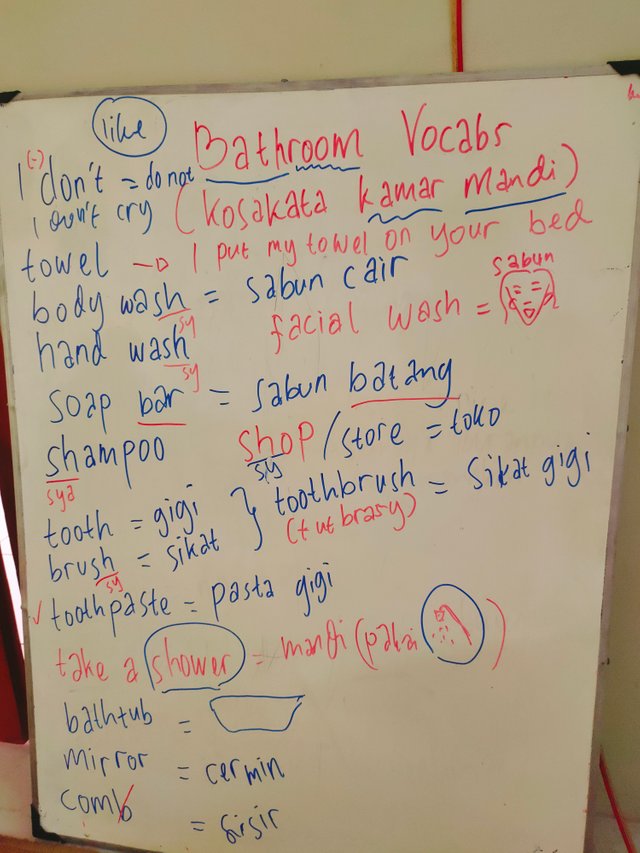 like
Bathroom Vocabs
(-)
I don't = do not
I don't cry
(kosakata kamar Mandi)
towel → I put my towel on your bed
body wash = sabun cair
sy
hand wash
sy
facial wash =
sabun
soap bar = sabun batang
shampoo
sya
shop / store = toko
sy
tooth = gigi
brush = sikat
sy
} toothbrush = sikat gigi
(tut brasy)
✓ toothpaste = pasta gigi
take a shower = mandi (pakai )
bathtub =
mirror = cermin
comb = sisir